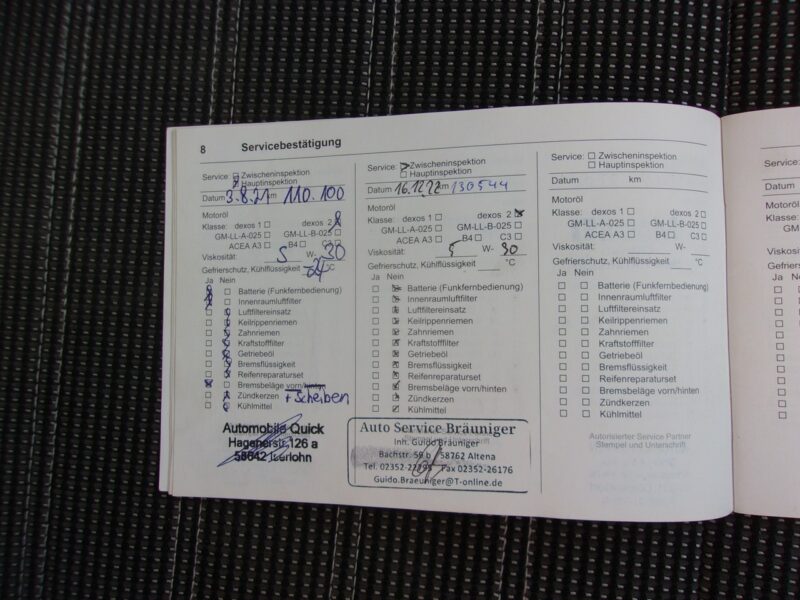 8 Servicebestätigung
Service: Zwischeninspektion
Hauptinspektion
Datum 3.8.21 km 110.100
Motoröl
Klasse: dexos 1 dexos 2
GM-LL-A-025 GM-LL-B-025
ACEA A3 B4 C3
Viskosität: 5 W- 30
Gefrierschutz, Kühlflüssigkeit °C
Ja Nein
Batterie (Funkfernbedienung)
Innenraumluftfilter
Luftfiltereinsatz
Keilrippenriemen
Zahnriemen
Kraftstofffilter
Getriebeöl
Bremsflüssigkeit
Reifenreparaturset
Bremsbeläge vorn/hinten
Zündkerzen + Scheiben
Kühlmittel
Automobile Quick
Hagenerstr. 126 a
58642 Iserlohn
Service: Zwischeninspektion
Hauptinspektion
Datum 16.12.22 km 130544
Motoröl
Klasse: dexos 1 dexos 2
GM-LL-A-025 GM-LL-B-025
ACEA A3 B4 C3
Viskosität: 5 W- 30
Gefrierschutz, Kühlflüssigkeit °C
Ja Nein
Batterie (Funkfernbedienung)
Innenraumluftfilter
Luftfiltereinsatz
Keilrippenriemen
Zahnriemen
Kraftstofffilter
Getriebeöl
Bremsflüssigkeit
Reifenreparaturset
Bremsbeläge vorn/hinten
Zündkerzen
Kühlmittel
Auto Service Bräuniger
Inh. Guido Bräuniger
Bachstr. 59 b 58762 Altena
Tel. 02352-22295 Fax 02352-26176
Guido.Braeuniger@T-online.de
Service: Zwischeninspektion
Hauptinspektion
Datum km
Motoröl
Klasse: dexos 1 dexos 2
GM-LL-A-025 GM-LL-B-025
ACEA A3 B4 C3
Viskosität: W-
Gefrierschutz, Kühlflüssigkeit °C
Ja Nein
Batterie (Funkfernbedienung)
Innenraumluftfilter
Luftfiltereinsatz
Keilrippenriemen
Zahnriemen
Kraftstofffilter
Getriebeöl
Bremsflüssigkeit
Reifenreparaturset
Bremsbeläge vorn/hinten
Zündkerzen
Kühlmittel
Autorisierter Service Partner
Stempel und Unterschrift
Service:
Datum
Motoröl
Klasse:
Viskosität
Gefrierschutz
Ja N